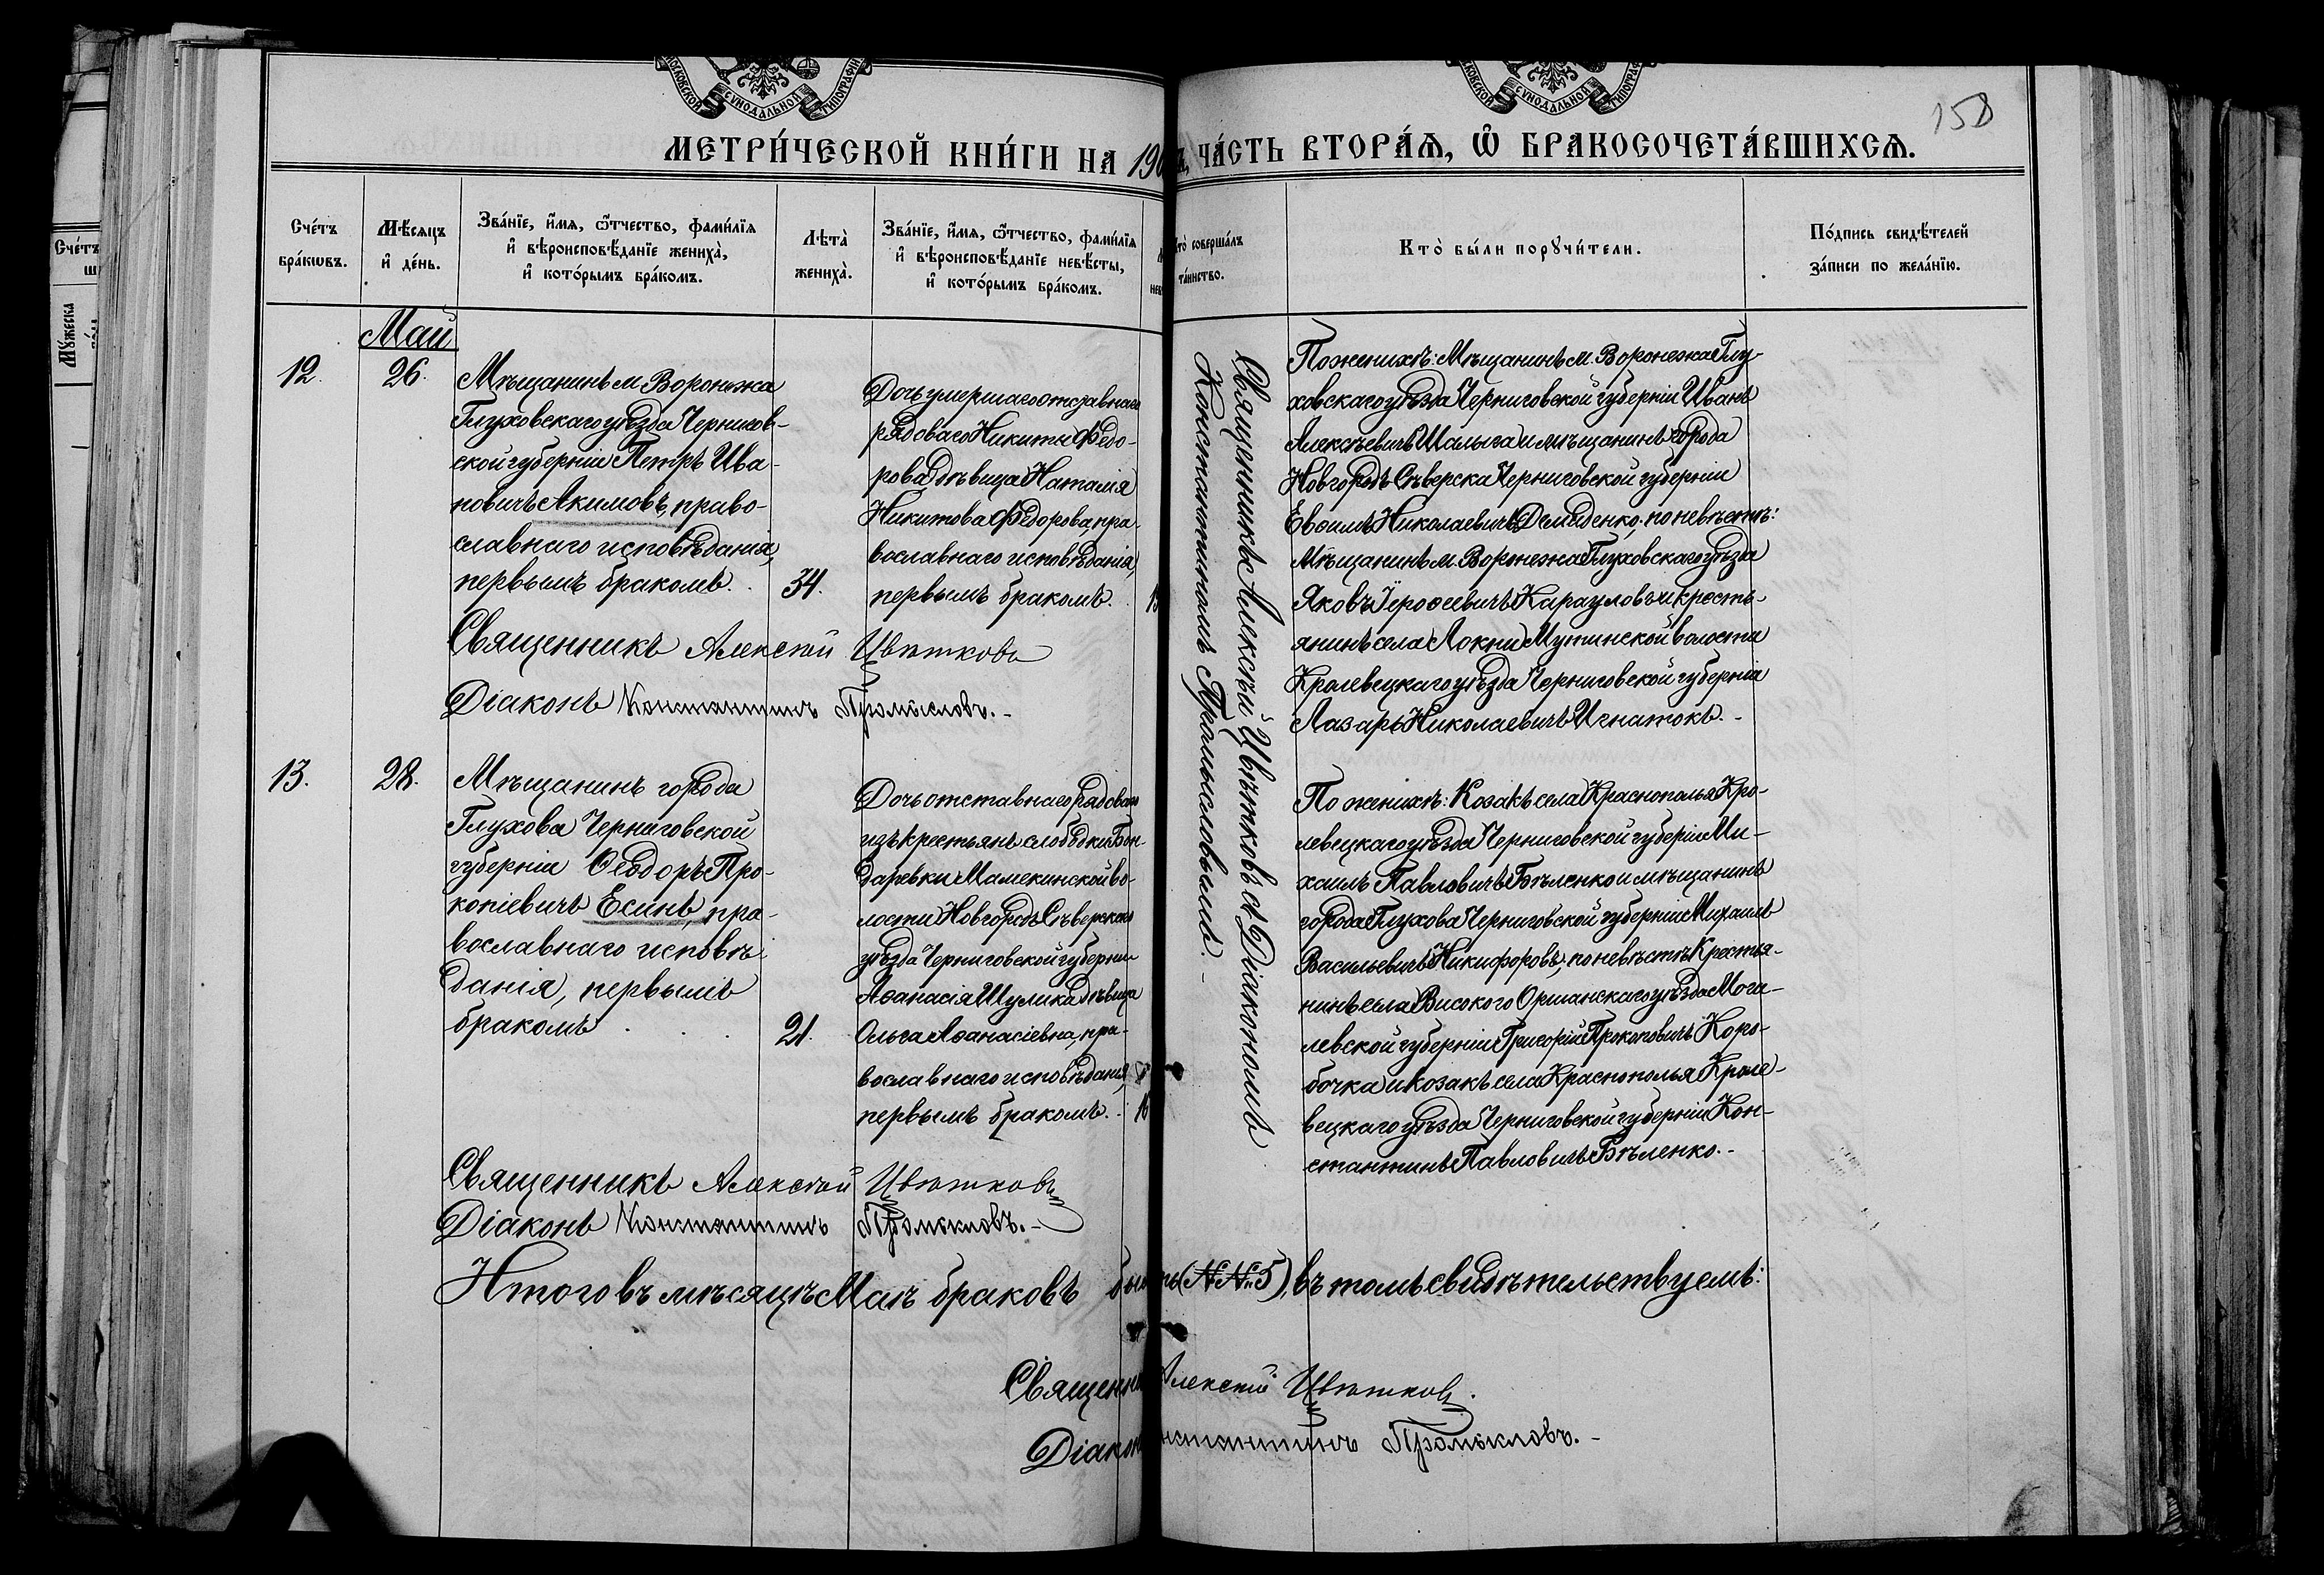 МОСКОВСКОЙ СѴНОДАЛЬНОЙ ТИПОГРАФІИ
МОСКОВСКОЙ СѴНОДАЛЬНОЙ ТИПОГРАФІИ
158
МЕТРИ́ЧЕСКОЙ КНИ́ГИ НА 190
ЧА́СТЬ ВТОРА́Ѧ, Ѽ БРАКОСОЧЕТА́ВШИХСѦ.
Сче́тъ
бра́кѡвъ.
Мѣ́сяцъ
и҆ де́нь.
Зва́нїе, и҆́мя, ѻ҆́тчество, фами́лїя
и҆ вѣроисповѣ́данїе жениха̀,
и҆ кото́рымъ бра́комъ.
Лѣта̀
жениха̀.
Зва́нїе, и҆́мя, ѻ҆́тчество, фами́лїя
и҆ вѣроисповѣ́данїе невѣ́сты,
и҆ кото́рымъ бра́комъ.
совершáлъ
та́инство.
Кто̀ бы́ли порꙋчи́тели.
По́дпись свидѣ́телей
за́писи по жела́нїю.
Сче́тъ
Май
12.
26.
Мѣщанинъ м. Воронежа
Глуховскаго уѣзда Чернигов-
ской губерніи Петръ Ива-
новичъ Акимовъ, право-
славнаго исповѣданія,
первымъ бракомъ.
34.
Дочь умершаго отставнаго
рядоваго Никиты Федо-
рова дѣвица Наталія
Никитова Федорова, пра-
вославнаго исповѣданія,
первымъ бракомъ.
Священникъ Алексѣй Цвѣтковъ
Діаконъ Константинъ Промысловъ.-
Священникъ Алексѣй Цвѣтковъ съ Діакономъ
Константиномъ Промысловымъ.-
По женихѣ: Мѣщанинъ м. Воронежа Глу-
ховскаго уѣзда Черниговской губерніи Иванъ
Алексѣевичъ Шалыга и мѣщанинъ города
Новгородъ Сѣверска Черниговской губерніи
Николаевичъ Демиденко; по невѣстѣ:
Мѣщанинъ м. Воронежа Глуховскаго уѣзда
Яковъ Іероѳеевичъ Карауловъ и кресть-
янинъ села Локни Мутинской волости
Кролевецкаго уѣзда Черниговской губерніи
Лазарь Николаевичъ Игнатокъ.-
13.
28.
Мѣщанинъ города
Глухова Черниговской
губерніи Ѳеодоръ Про-
копіевичъ Есинъ, пра-
вославнаго исповѣ-
данія, первымъ
бракомъ
21.
Дочь отставнаго рядоваго
изъ крестьянъ слободки Бон-
даревки Мамекинской во-
лости Новгородъ Сѣверскаго
уѣзда Черниговской губерніи
Аѳанасія Шулика дѣвица
Ольга Аѳанасіевна, пра-
вославнаго исповѣданія,
первымъ бракомъ.
16
По женихѣ: Козакъ села Краснополья Кро-
левецкаго уѣзда Черниговской губерніи Ми-
хаилъ Павловичъ Бѣленко и мѣщанинъ
города Глухова Черниговской губерніи Михаилъ
Васильевичъ Никифоровъ; по невѣстѣ Крестья-
нинъ села Високого Оршанскаго уѣзда Моги-
левской губерніи Григорій Прокоповичъ Коро-
бочка и козакъ села Краснополья Кроле-
вецкаго уѣзда Черниговской губерніи Кон-
стантинъ Павловичъ Бѣленко.-
Священникъ Алексѣй Цвѣтковъ
Діаконъ Константинъ Промысловъ.-
Итого въ мѣсяцѣ Маѣ браковъ (№№ 5), въ томъ свидѣтельствуемъ:
Алексѣй Цвѣтковъ.
Промысловъ.-